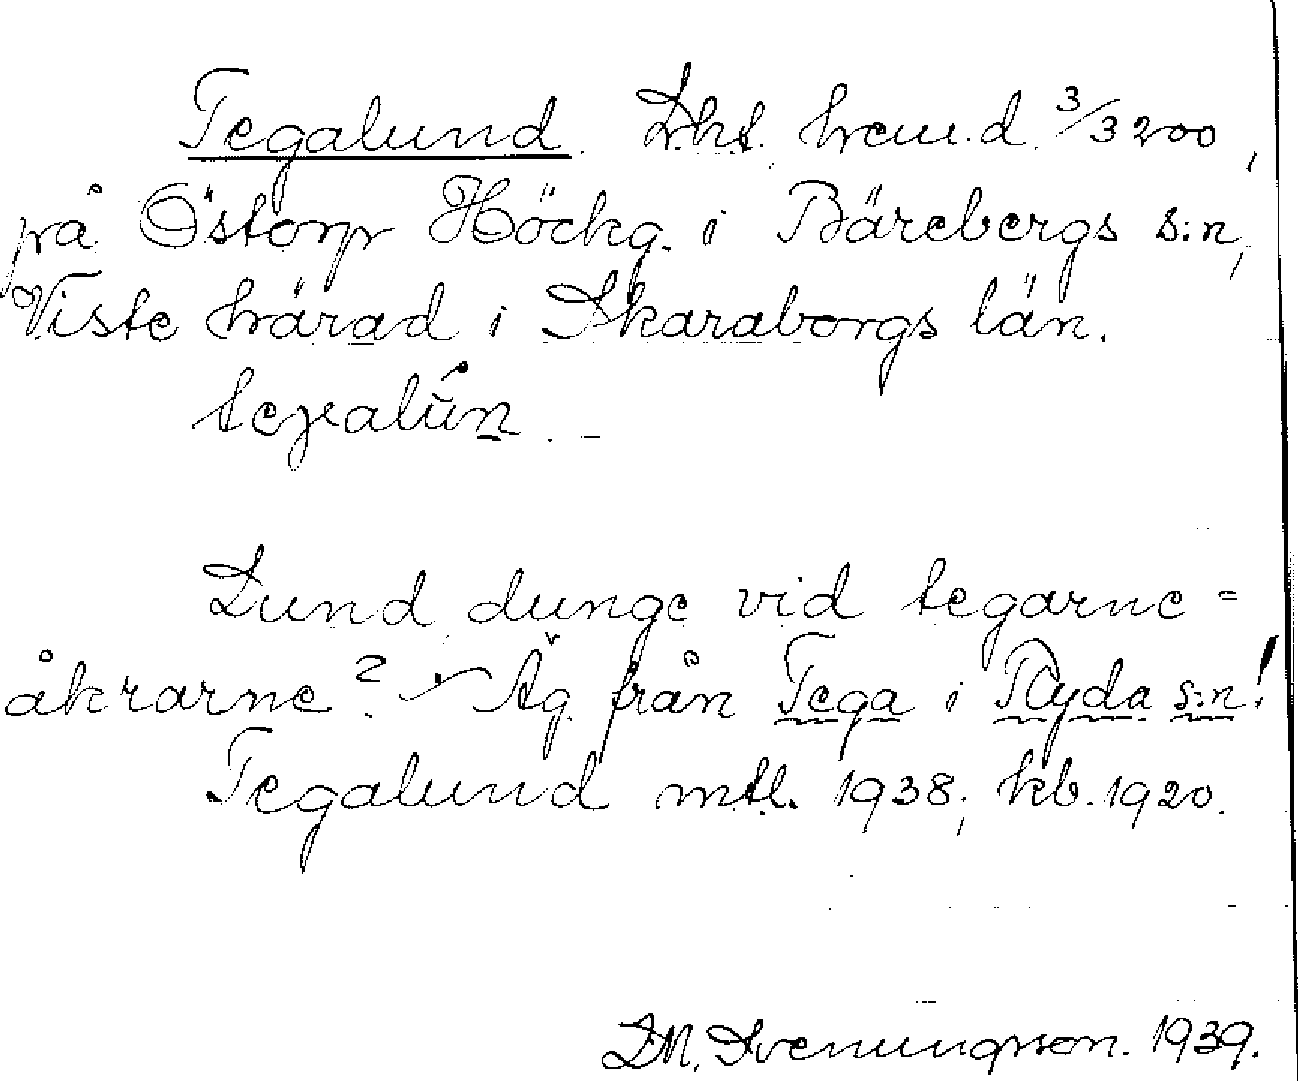 Tegalund. Lht. hem.d. 3/3200,
på Östorp Höckg. i Bärebergs s:n,
Viste härad i Skaraborgs län.
Lund, dunge vid tegarne =
åkrarne? Äg. från Tega i Ryda s:n!
Tegalund mtl. 1938; kb. 1920.
D.M. Sveningsson. 1939.